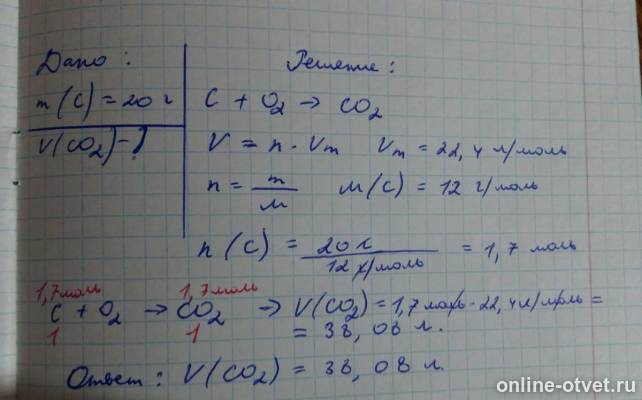 Дано:
m(C) = 20 г
V(CO2) - ?
Решение:
C + O2 → CO2
V = n · Vm Vm = 22,4 л/моль
n = m/M M(C) = 12 г/моль
n(C) = 20 г / 12 г/моль = 1,7 моль
1,7 моль 1,7 моль
C + O2 → CO2 → V(CO2) = 1,7 моль · 22,4 л/моль =
1 1 = 38,08 л.
Ответ: V(CO2) = 38,08 л.
online-otvet.ru